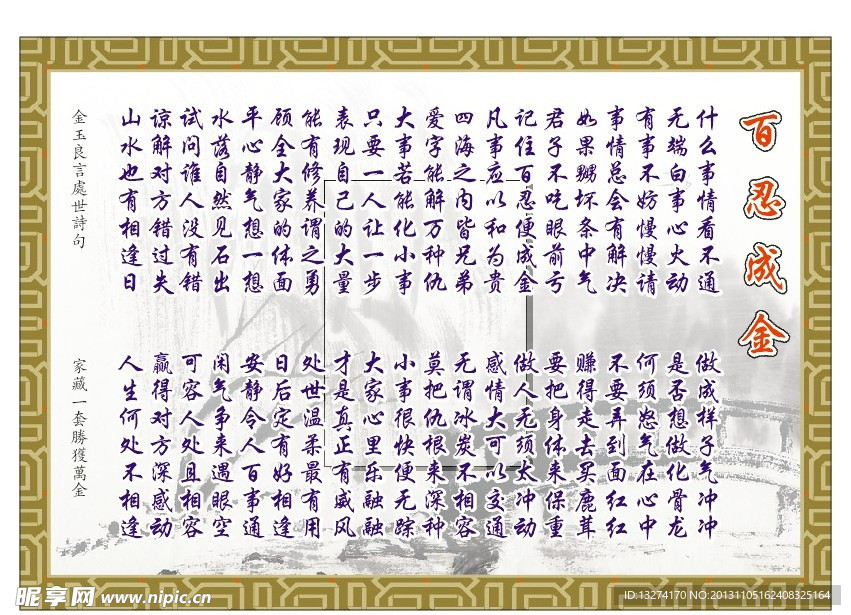 百忍成金
什么事情看不通 做成样子气冲冲
无端白事心火动 是否想做化骨龙
有事不妨慢慢请 何须怒气在心中
事情总会有解决 不要弄到面红红
如果嬲坏条中气 赚得走去买鹿茸
君子不吃眼前亏 要把身体来保重
记住百忍便成金 做人无须太冲动
凡事应以和为贵 感情大可以交通
四海之内皆兄弟 无谓冰炭不相容
爱字能解万种仇 莫把仇根来深种
大事若能化小事 小事很快便无踪
只要一人让一步 大家心里乐融融
表现自己的大量 才是真正有威风
能有修养谓之勇 处世温柔最有用
顾全大家的体面 日后定有好相逢
平心静气想一想 安静令人百事通
水落自然见石出 闲气争来遇眼空
试问谁人没有错 可容人处且相容
谅解对方错过失 赢得对方深感动
山水也有相逢日 人生何处不相逢
金玉良言處世詩句 家藏一套勝獲萬金
昵享网 www.nipic.cn
ID:13274170 NO:20131105162408325164